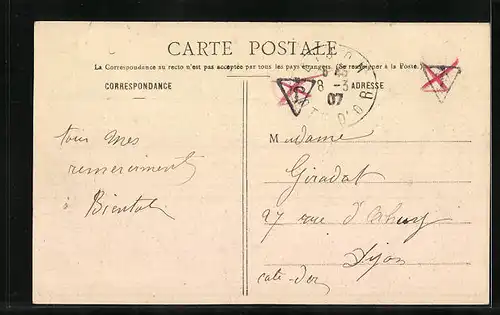 CARTE POSTALE
La Correspondance au recto n'est pas acceptée par tous les pays étrangers. (Se renseigner à la Poste.)
CORRESPONDANCE
ADRESSE
8 - 3
07
CÔTE D'OR
tous mes
remerciements
à Bientôt
Madame
Giradot
27 rue d'
Dijon
Cote-d'or